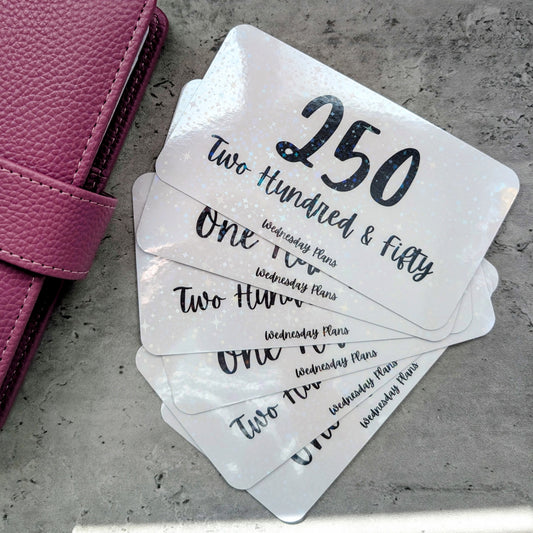 250
Two Hundred & Fifty
Wednesday Plans
One
Wednesday Plans
Two
Wednesday Plans
One
Wednesday Plans
Two
Wednesday Plans
One
Wednesday Plans